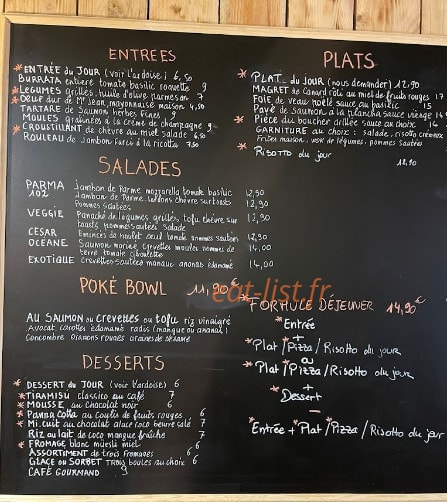 ENTREES
* ENTRÉE du JOUR (voir l'ardoise) 6,50
BURRATA entière tomate basilic roquette 9
* LEGUMES grillés, huile d'olive parmesan 7
* Oeuf dur de Mr Jean, mayonnaise maison 4,50
TARTARE de Saumon herbes fines 9
MOULES gratinées à la crème de champagne 9
* CROUSTILLANT de chèvre au miel salade 6,50
ROULEAU de Jambon farci à la ricotta 7,50
PLATS
* PLAT du JOUR (nous demander) 12,90
MAGRET de Canard rôti au miel de fruits rouges 17
FOIE de veau poêlé sauce au basilic 15
Pavé de Saumon à la plancha sauce vierge 14
* Pièce du boucher grillée sauce au choix 14
GARNITURE au choix : salade, risotto crémeux
Frites maison, légumes, pommes sautées
* Risotto du jour
SALADES
PARMA Jambon de Parme mozzarella tomate basilic 12,90
102 Jambon de Parme, lardons chèvre sur toasts 13,90
Pommes sautées
VEGGIE Panaché de légumes grillés, tofu, chèvre sur 12,90
toasts, pommes sautées salade
CESAR Emincés de poulet oeuf tomate pommes sautées 12,90
OCEANE Saumon mariné crevettes moules pommes de 14,00
terre tomate ciboulette
EXOTIQUE Crevettes sautées mangue ananas edamamé 14,00
POKÉ BOWL 11,90€
AU SAUMON ou CREVETTES ou TOFU riz vinaigré
Avocat carottes édamamé radis (mangue ou ananas)
Concombre oignons rouges graines de sésame
eat-list.fr
* FORMULE DÉJEUNER 14,90€
* Entrée
+
* Plat / * Pizza / Risotto du jour
ou
* Plat / * Pizza / Risotto du jour
+
* Dessert
* Entrée + * Plat / * Pizza / Risotto du jour
DESSERTS
* DESSERT du JOUR (voir l'ardoise) 6
* TIRAMISU classico au café 7
* MOUSSE au chocolat noir 6
* Panna Cotta au coulis de fruits rouges 6
* Mi.cuit au chocolat glace coco beurre salé 7
Riz au lait de coco mangue fraîche 7
* FROMAGE blanc miel 6
ASSORTIMENT de trois Fromages 6
GLACE ou SORBET trois boules au choix 6
CAFÉ GOURMAND 9